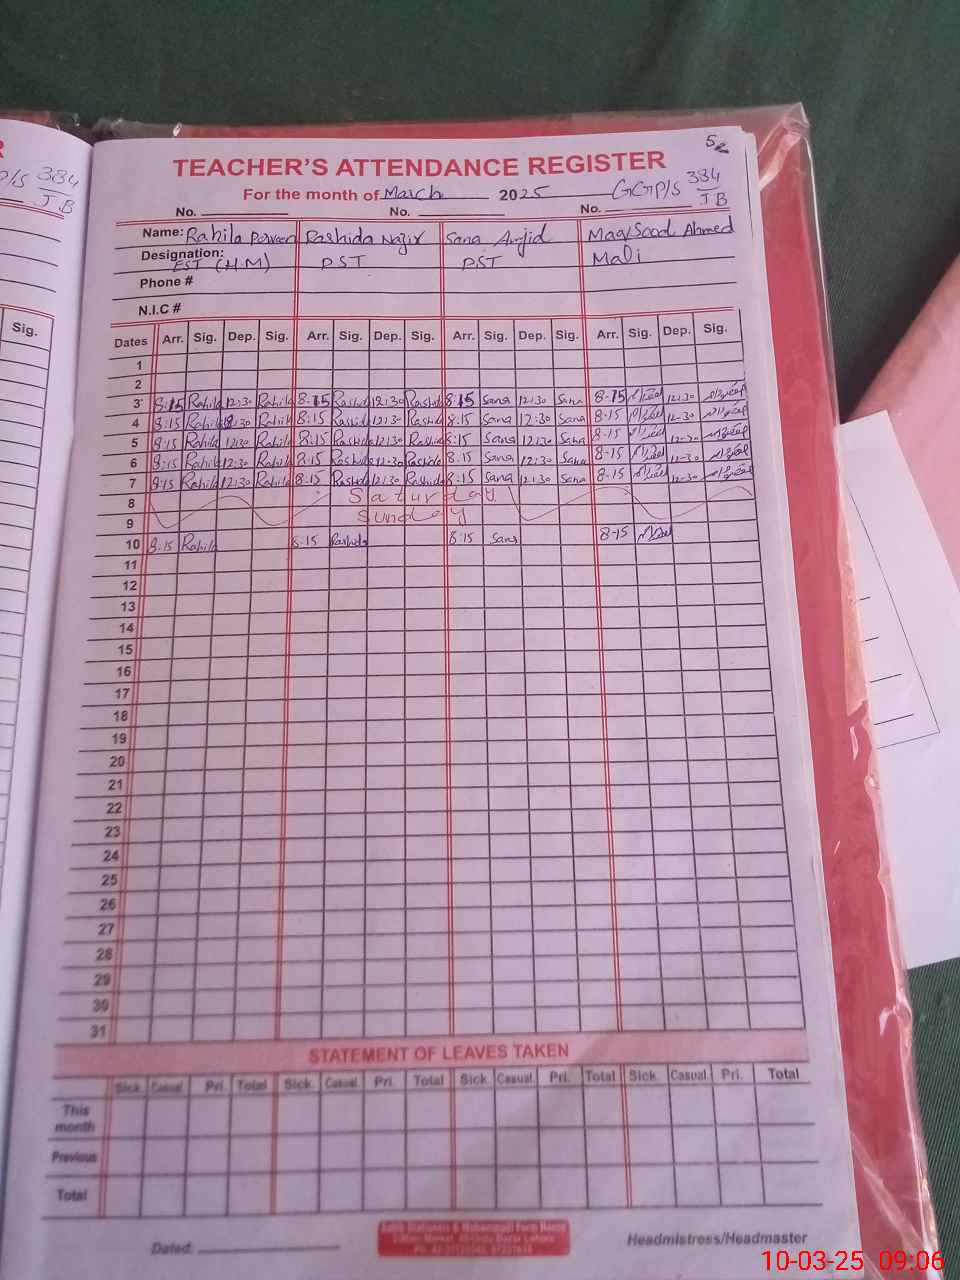 R
P/S 384
J B
Sig.
5
TEACHER'S ATTENDANCE REGISTER
For the month of March 2025 GGP/S 384
J B
No. No. No.
Name: Rahila Parveen Rashida Nazir Sana Amjid Maqsood Ahmed
Designation: EST (H.M) PST PST Mali
Phone #
N.I.C #
Dates Arr. Sig. Dep. Sig. Arr. Sig. Dep. Sig. Arr. Sig. Dep. Sig. Arr. Sig. Dep. Sig.
1
2
3 8:15 Rahila 12:30 Rahila 8:15 Rashida 12:30 Rashida 8:15 Sana 12:30 Sana 8-15 12-30
4 8:15 Rahila 12:30 Rahila 8:15 Rashida 12:30 Rashida 8:15 Sana 12:30 Sana 8-15 12-30
5 8:15 Rahila 12:30 Rahila 8:15 Rashida 12:30 Rashida 8:15 Sana 12:30 Sana 8-15 12-30
6 8:15 Rahila 12:30 Rahila 8:15 Rashida 12-30 Rashida 8:15 Sana 12:30 Sana 8-15 12-30
7 8:15 Rahila 12:30 Rahila 8:15 Rashida 12:30 Rashida 8:15 Sana 12:30 Sana 8-15 12-30
8 Saturday
9 Sunday
10 8:15 Rahila 8:15 Rashida 8:15 Sana 8-15
11
12
13
14
15
16
17
18
19
20
21
22
23
24
25
26
27
28
29
30
31
STATEMENT OF LEAVES TAKEN
Sick. Casual. Pri. Total Sick. Casual. Pri. Total Sick. Casual. Pri. Total Sick. Casual. Pri. Total
This month
Previous
Total
Dated: Headmistress/Headmaster
10-03-25 09:06